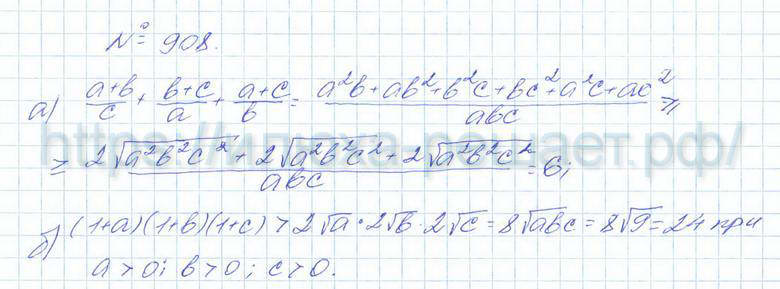 № 908.
а) (a+b)/c + (b+c)/a + (a+c)/b = (a²b+ab²+b²c+bc²+a²c+ac²)/abc ≥
≥ (2√a²b²c² + 2√a²b²c² + 2√a²b²c²)/abc = 6;
https://ильяха-решает.рф/
б) (1+a)(1+b)(1+c) > 2√a · 2√b · 2√c = 8√abc = 8√9 = 24 при
a > 0; b > 0; c > 0.